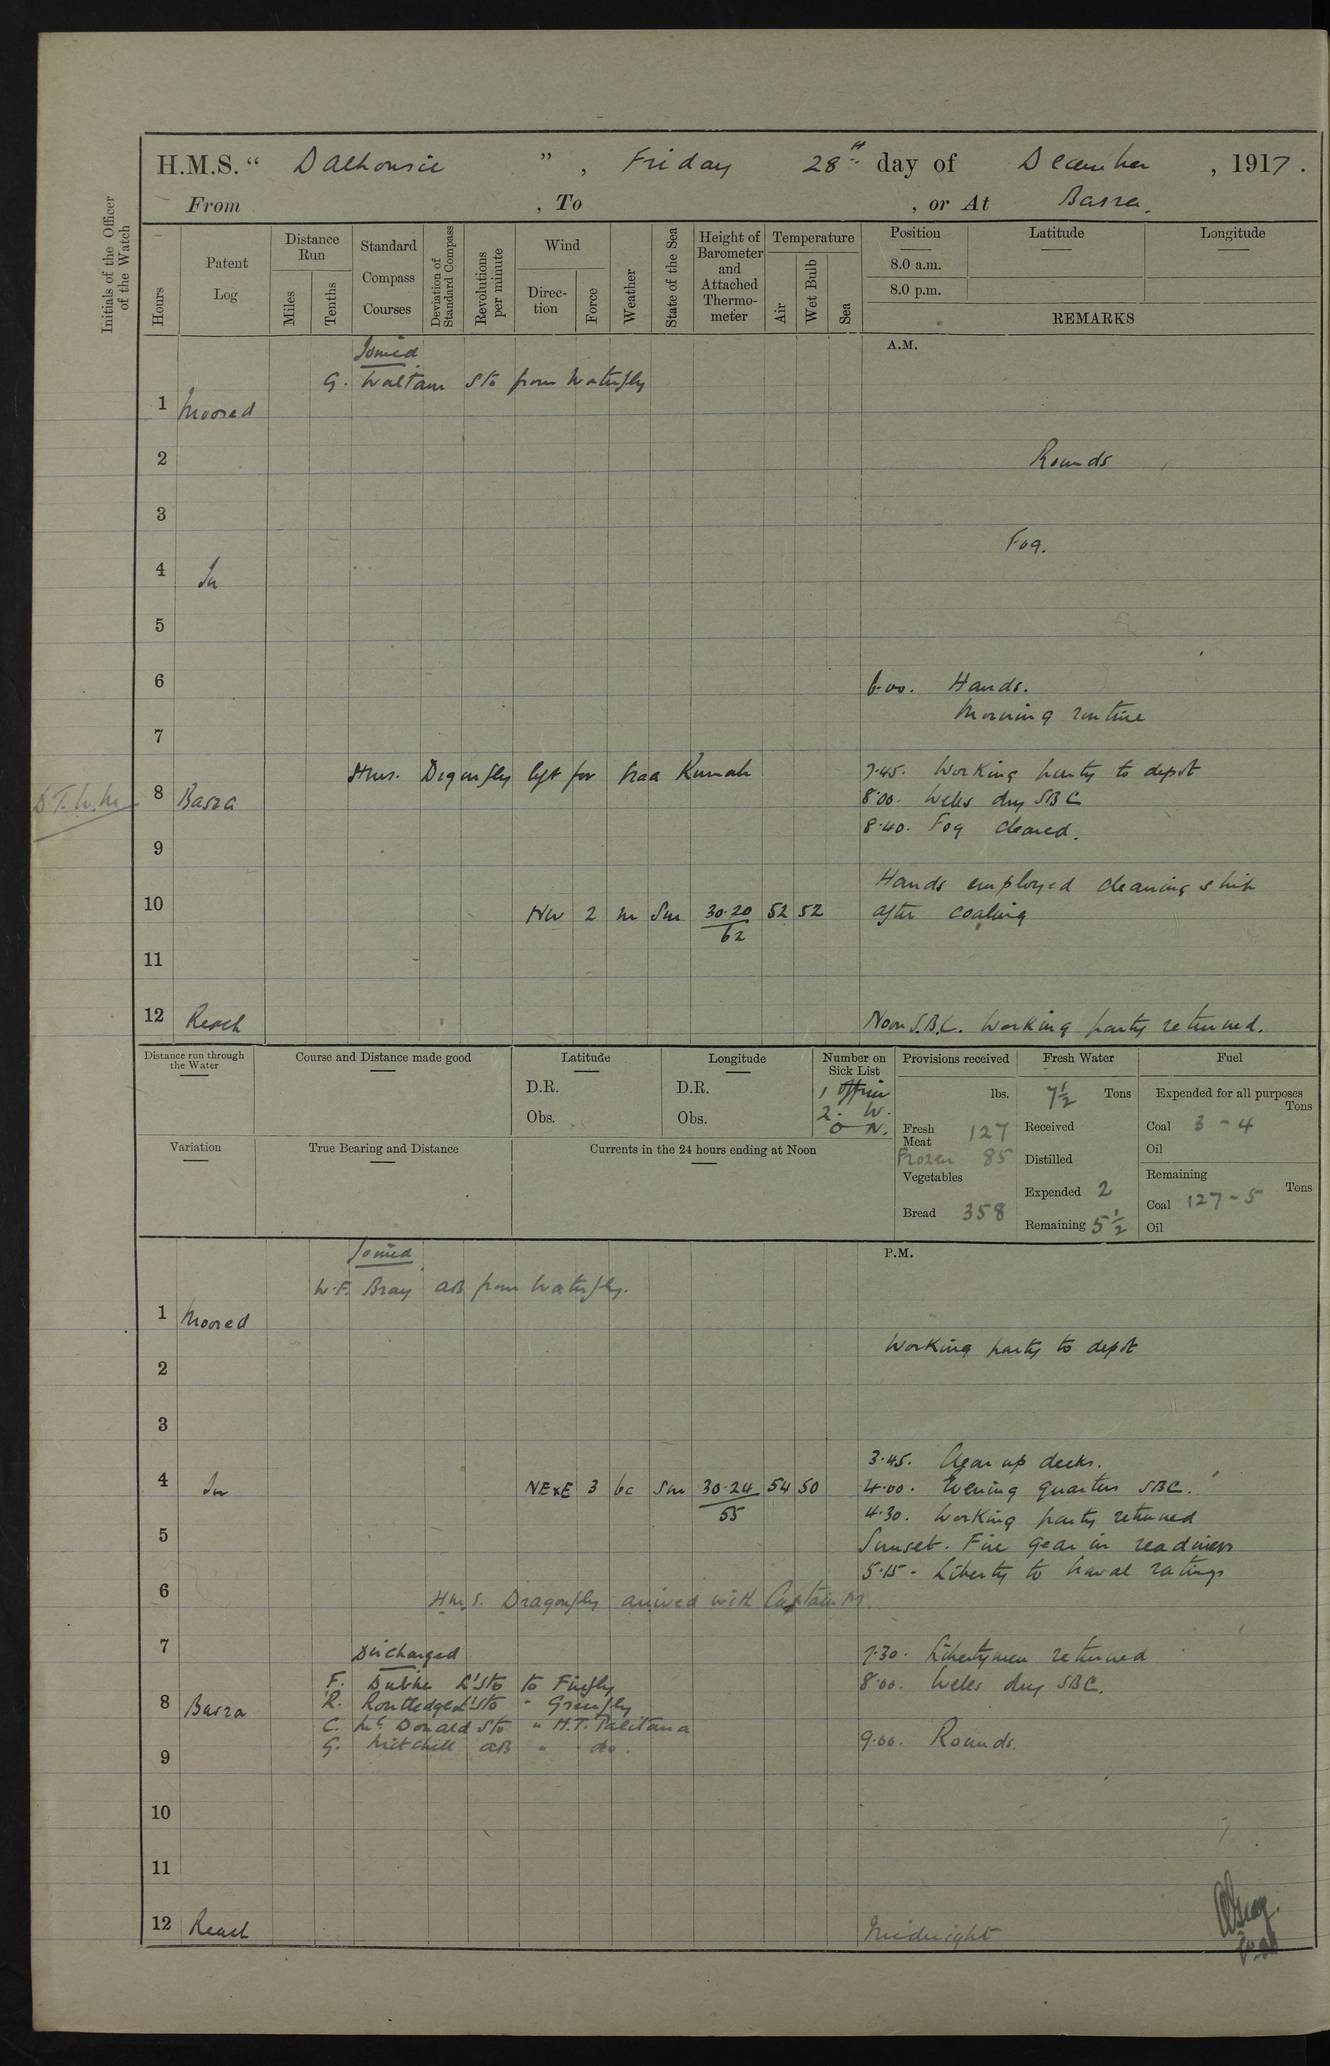 H.M.S. " Dalhousie ", Friday 28th day of December, 1917.
From , To , or At Basra.
Initials of the Officer of the Watch
Hours
Patent Log
Distance Run
Miles
Tenths
Standard Compass Courses
Deviation of Standard Compass
Revolutions per minute
Wind
Direction
Force
Weather
State of the Sea
Height of Barometer and Attached Thermometer
Temperature
Air
Wet Bulb
Sea
Position
8.0 a.m.
8.0 p.m.
Latitude
Longitude
REMARKS
Joined
A.M.
G. Waltam Sto from Waterfly
1 Moored
2 Rounds
3
Fog.
4 In
5
6 6.00. Hands.
Morning routine
7
Hms. Dragonfly left for Kumah 7.45. Working party to depot
8 Basra 8.00. Weks dry SBC
8.40. Fog cleared.
9
Hands employed cleaning ship
10 NW 2 m Sm 30.20 52 52 after coaling
62
11
12 Reach Noon S.B.C. Working party returned.
Distance run through the Water
Course and Distance made good
Latitude
D.R.
Obs.
Longitude
D.R.
Obs.
Number on Sick List
1 officer
2. W.
0 N.
Provisions received
lbs.
Fresh Meat 127
Frozen 85
Vegetables
Bread 358
Fresh Water
7½ Tons
Received
Distilled
Expended 2
Remaining 5½
Fuel
Expended for all purposes
Tons
Coal 3 - 4
Oil
Remaining
Tons
Coal 127 - 5
Oil
Variation
True Bearing and Distance
Currents in the 24 hours ending at Noon
Joined
P.M.
W.F. Bray AB from Waterfly.
1 Moored
Working party to depot
2
3
3.45. Clear up decks.
4 In NExE 3 bc Sm 30.24 54 50 4.00. Evening quarters SBC.
55
4.30. Working party returned
5 Sunset. Fire gear in readiness
5.15 - Liberty to Naval ratings
6 H.M.S. Dragonfly arrived with Captain M.
7 Discharged 7.30. Libertymen returned
F. L'Sto to Firefly 8.00. Weks dry SBC.
8 Basra R. Routledge L'Sto " Greenfly
C. McDonald Sto " H.T. Palitana
G. Mitchell AB " do. 9.00. Rounds.
9
10
11
12 Reach Midnight